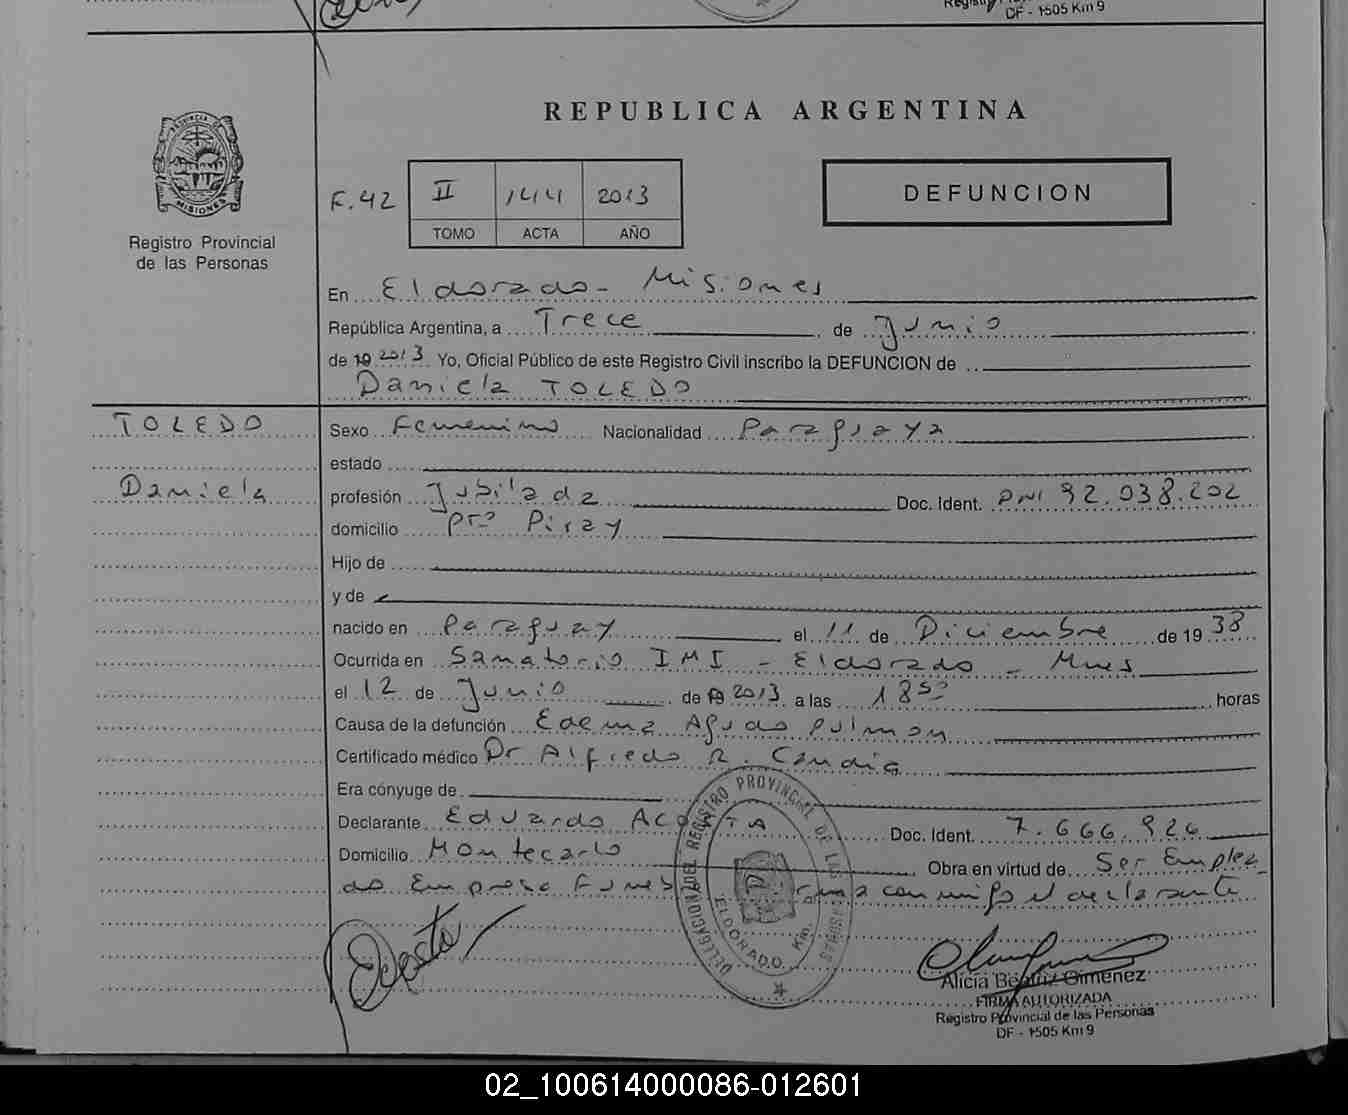 DF - 1505 Km 9
REPUBLICA ARGENTINA
PROVINCIA DE
MISIONES
Registro Provincial
de las Personas
F.42 II 144 2013
TOMO ACTA AÑO
DEFUNCION
En Eldorado - Misiones
República Argentina, a Trece de Junio
de 19 2013 Yo, Oficial Público de este Registro Civil inscribo la DEFUNCION de
Daniela TOLEDO
TOLEDO
Daniela
Sexo Femenino Nacionalidad Paraguaya
estado
profesión Jubilada Doc. Ident. DNI 92.038.202
domicilio Pto Piray
Hijo de
y de
nacido en Paraguay el 11 de Diciembre de 19 38
Ocurrida en Sanatorio IMI - Eldorado - Mnes
el 12 de Junio de 19 2013 a las 18 50 horas
Causa de la defunción Edema Agudo pulmon
Certificado médico Dr Alfredo R. Candia
Era cónyuge de
Declarante Eduardo ACOSTA Doc. Ident. 7.666.926
Domicilio Montecarlo Obra en virtud de Ser Emplea
do Empresa Funeb firma conmigo el declarante
DELEGACION DEL REGISTRO PROVINCIAL DE LAS PERSONAS
ELDORADO Km.
EAcosta
Alicia Beatriz Gimenez
FIRMA AUTORIZADA
Registro Provincial de las Personas
DF - 1505 Km 9
02_100614000086-012601